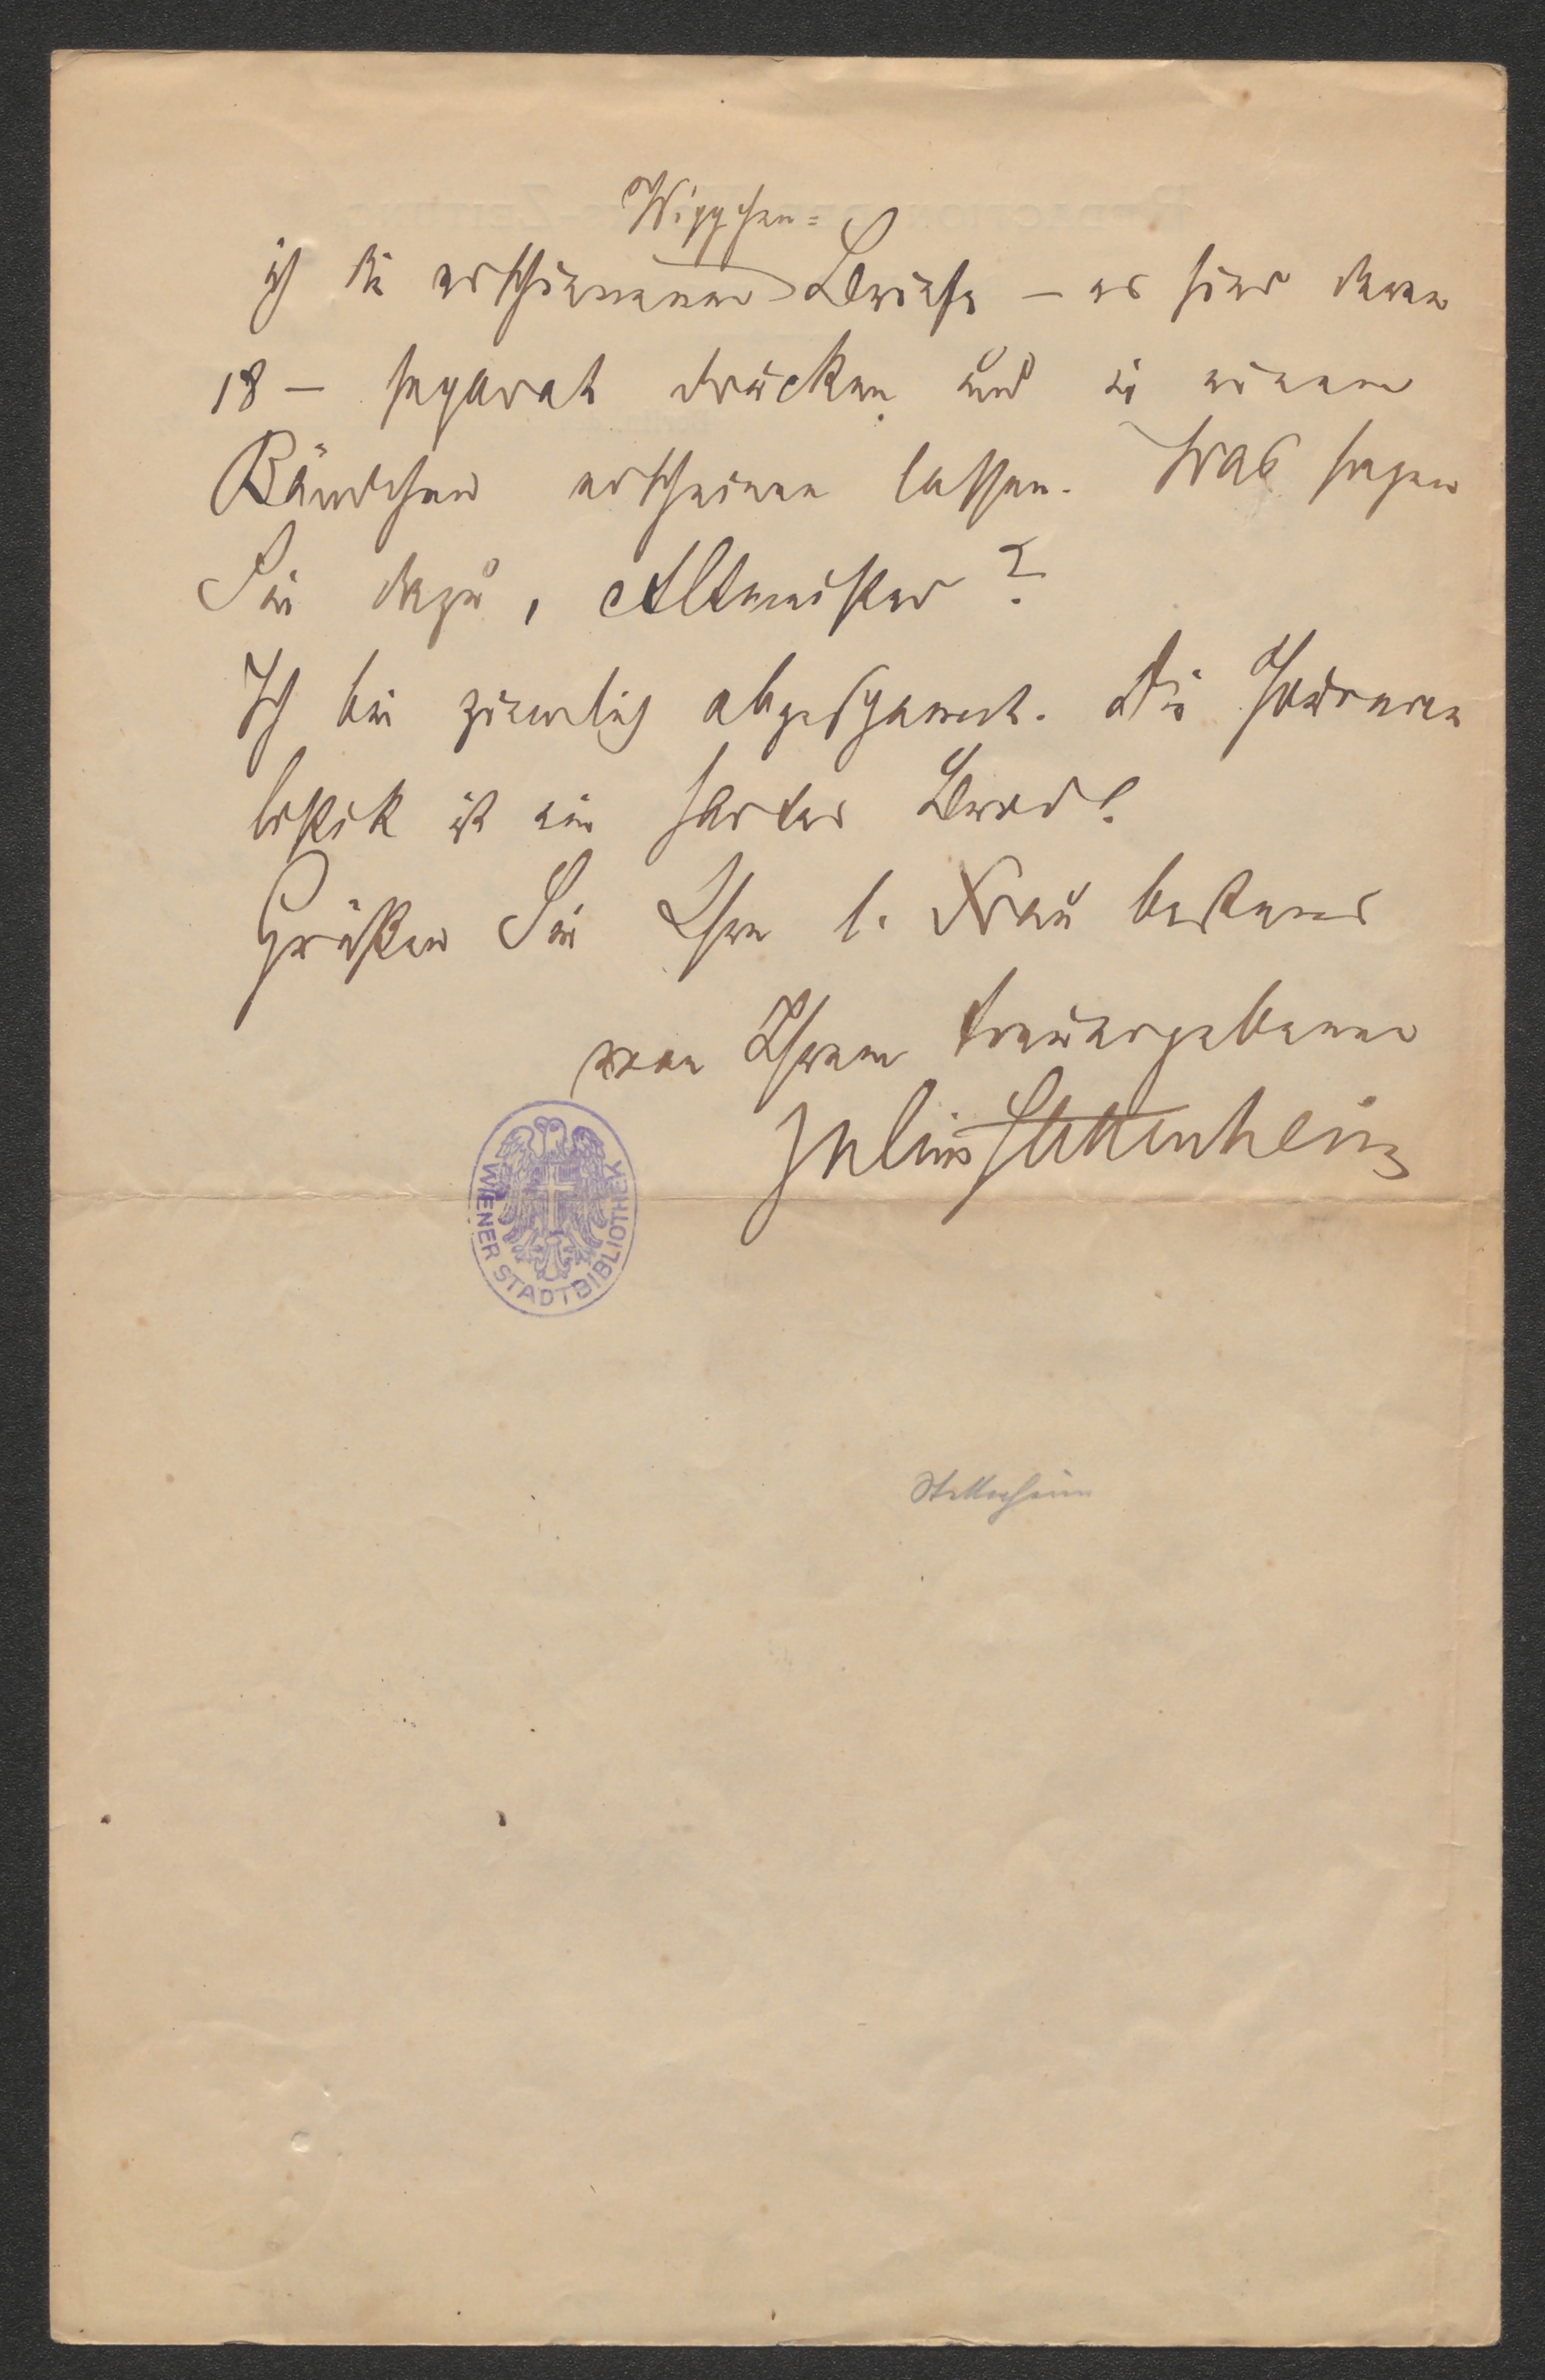 Wippchen=
ich die erschienenen Briefe – es sind deren
18 – separat drucken und in einem
Bändchen erscheinen lassen. Was sagen
Sie dazu, Altmeister?
Ich bin ziemlich abgespannt. Die Journa
listik ist ein hartes Brod!
Grüßen Sie Ihre l. Frau bestens
von Ihrem treuergebenen
Julius Stettenheim
WIENER STADTBIBLIOTHEK
Stettenheim